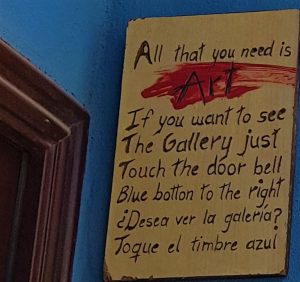 All that you need is
Art
If you want to see
The Gallery just
Touch the door bell
Blue botton to the right
¿Desea ver la galería?
Toque el timbre azul